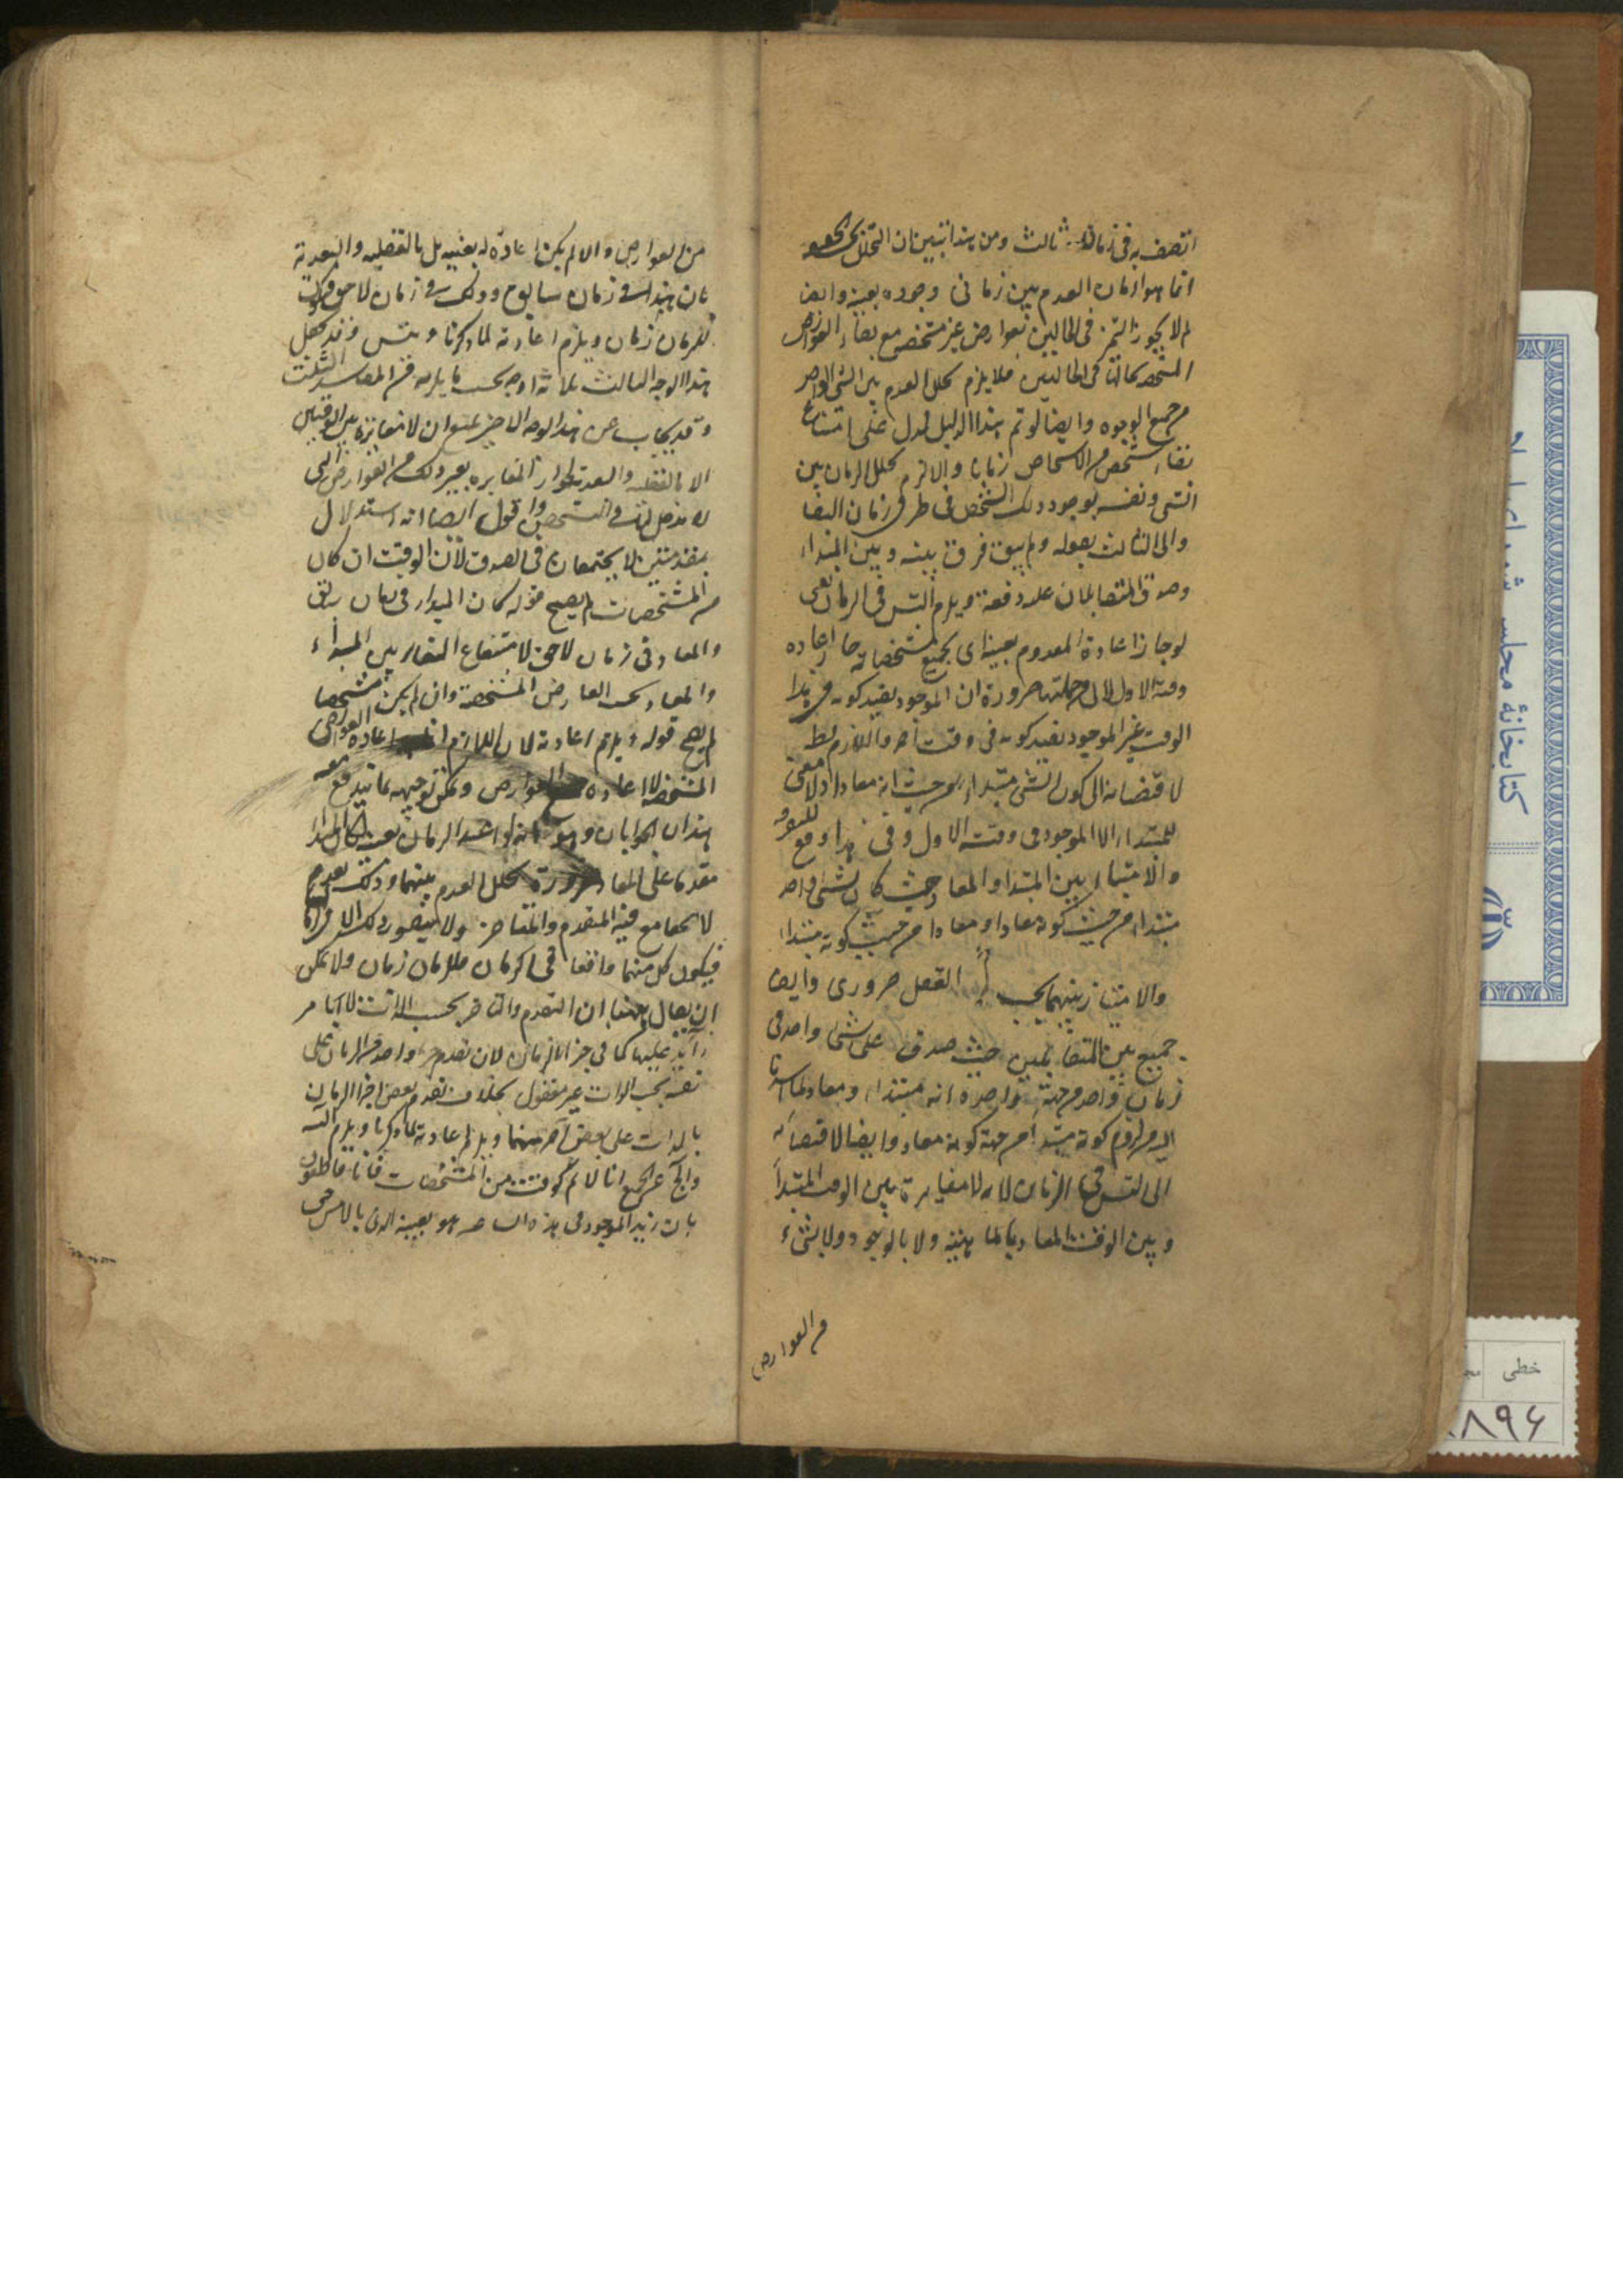 اتصف به فى زمان ثالث ومن هذا تبين ان التخلل بحسب
انما هو لزمان العدم بين زمانى وجوده بعينه وايضا
لم لا يجوز التميز فى الحالين بعوارض غير مشخصه مع بقاء العوارض
المشخصه بحالها فى الحالين فلا يلزم تخلل العدم بين الشى الواحد
من جميع الوجوه وايضا لو تم هذا الدليل لدل على امتناع
بقاء شخص من الاشخاص زمانا والا لزم تخلل الزمان بين
الشى ونفسه لوجود ذلك الشخص فى طرفى زمان البقا
والى الثالث بقوله ولم يبق فرق بينه وبين المبتداء
وصدق المتقابلان عليه دفعة ويلزم التس فى الزمان يعنى
لو جاز اعادة المعدوم بعينه اى بجميع مشخصاته جاز اعاده
وقته الاول لانه من جملتها ضرورة ان الموجود بقيد كونه فى هذا
الوقت غير الموجود بقيد كونه فى وقت آخر واللازم بط
لافضائه الى كون الشى مبتداء من حيث انه معاد اذ لا معنى
للمبتداء الا الموجود فى وقته الاول وفى هذا رفع للتفرقه
والامتياز بين المبتدا والمعاد حيث كان شى واحد
مبتداء من حيث كونه معادا ومعادا من حيث كونه مبتداء
والامتياز بينهما بحسب العقل ضرورى وايضا
جميع بين المتقابلين حيث صدق على شى واحد فى
زمان واحد من جهة واحدة انه مبتداء ومعاد لما اشرنا
اليه من لزوم كونه مبتدا من جهة كونه معاد وايضا لافضائه
الى التس فى الزمان لانه لا مغايرة بين الوقت المبتدا
وبين الوقت المعاد بالماهية ولا بالوجود ولا بشىء
من العوارض
من العوارض والا لم يكن اعادة له بعينه بل بالقبليه والبعدية
بان هذا فى زمان سابق وذلك فى زمان لاحق فيكون
للزمان زمان ويلزم اعادته لما ذكرنا ويتس فقد حصل
هذا الوجه الثالث ثلاثة اوجه بحسب ما يلزمه من المفاسد الثلث
وقد يجاب عن هذا الوجه الاخير بمنع ان لا مغايرة بين الوقتين
الا بالقبليه والبعديه لجواز المغايره بغير ذلك من العوارض التى
لا مدخل لها فى التشخص واقول ايضا انه استدلال
بمقدمتين لا يجتمعان فى الصدق لان الوقت ان كان
من المشخصات لم يصح قوله كان المبدا فى زمان سابق
والمعاد فى زمان لاحق لامتناع التغاير بين المبداء
والمعاد بحسب العارض المشخصة وان لم يكن مشخصا
لم يصح قوله ويلزم اعادته لان اللازم اعاده العوارض
المشخصه لا اعاده العوارض ويمكن توجيهه بما يندفع معه
هذان الجوابان وهو انه لو اعيد الزمان بعينه لكان المبدا
مقدما على المعاد ضرورة تخلل العدم بينهما وذلك تقدم
لا يجامع فيه المتقدم والمتاخر ولا يتصور ذلك الا فى الزمان
فيكون كل منهما واقعا فى زمان فللزمان زمان ولا يمكن
ان يقال ههنا ان التقدم والتاخر بحسب الذات لا بامر
زايد عليها كما فى اجزا الزمان لان تقدم جزء واحد من الزمان على
نفسه بحسب الذات غير معقول بخلاف تقدم بعض اجزا الزمان
بالذات على بعض آخر منهما ويلزم اعادته لما ذكرنا ويلزم التس
والجواب عن الجميع انا لا نم كون الوقت من المشخصات فانا قاطعون
بان زيدا الموجود فى هذه الساعه هو بعينه الذى بالامس حتى
كتابخانهٔ مجلس شورای
خطی
۸۹۶